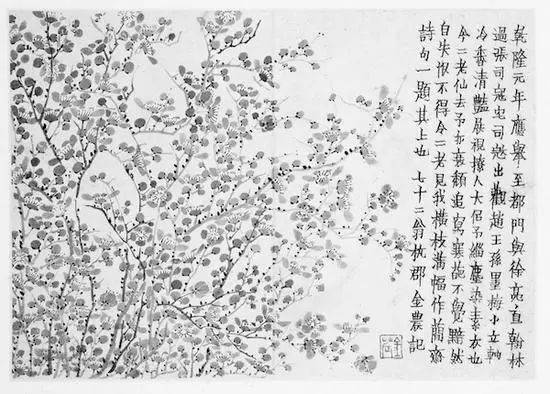 乾隆元年應舉至都門與徐亮直翰林
過張司寇宅司寇出觀趙王孫墨梅小立軸
冷香清豔展視撩人大似予緇塵染素衣也
今二老仙去予亦衰頹追寫寒葩不覺黯然
自失恨不得令二老見我橫枝滿幅作蘭齋
詩句一題其上也 七十二翁杭郡金農記